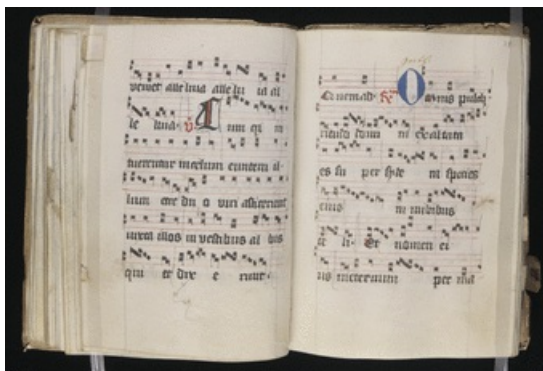 veniet alle luia alle lu ia al
le luia. V Cum qu in
tuerentur incelum euntem il
lum ecce duo viri astiterunt
iuxta illos in vestibus al bis
qui et dix e runt.
O mnis pulch
ritudo domi ni exaltata
es su per side
species
eius in nubibus
ce li. Et nomen ei
us ineternum per ma